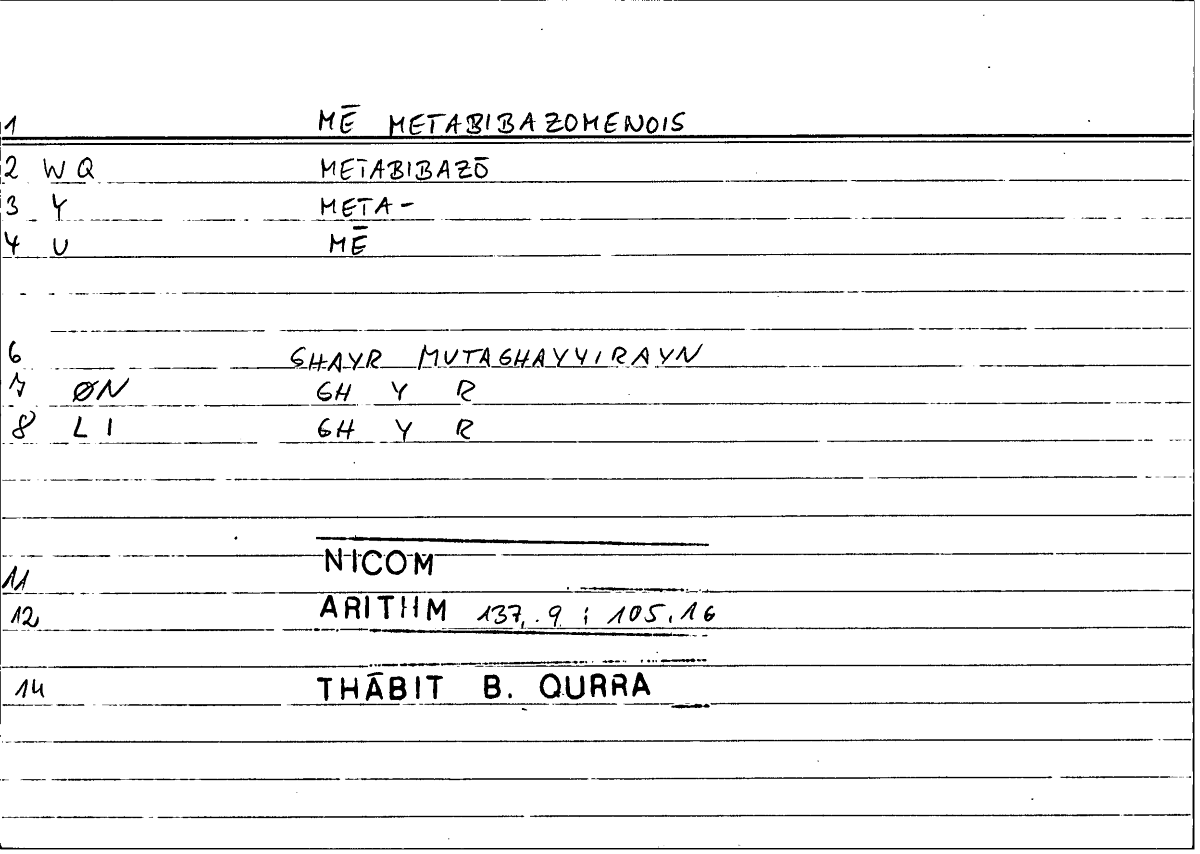 1 MĒ METABIBAZOMENOIS
2 WQ METABIBAZŌ
3 Y META-
4 U MĒ
6 GHAYR MUTAGHAYYIRAYN
7 ØN GH Y R
8 LI GH Y R
11 NICOM
12 ARITHM 137,.9 ; 105.16
14 THĀBIT B. QURRA